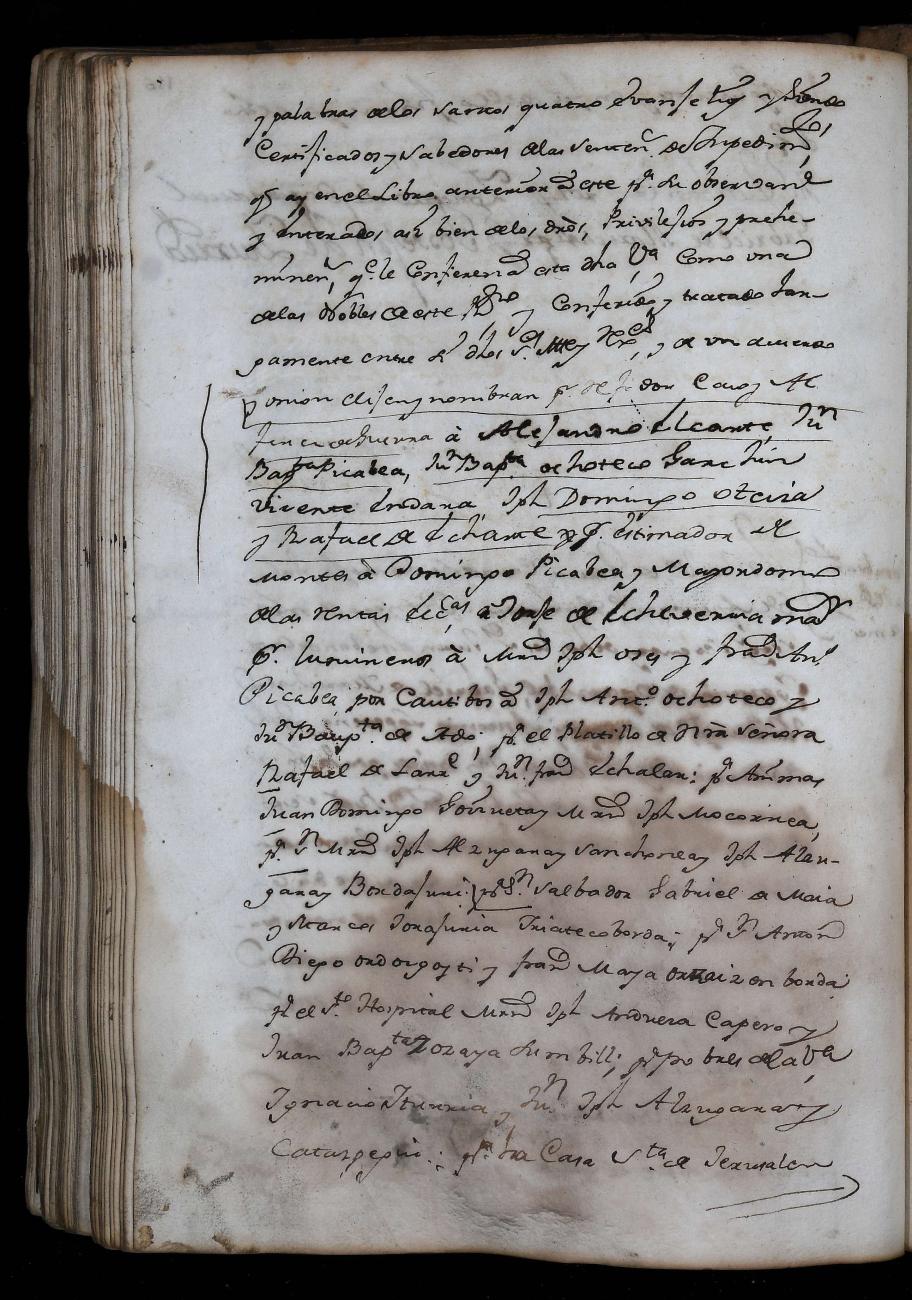 y palabras de los santos quatro Evangelios y siendo
Certificados y Sabedores de las Senten.s de Impedim.tos
q ay en el Libro anterior a este p.a su observan.a
y enterados asi bien de los dros, Privilejios y prehe-
minen.s, q.e le Confieren a esta dha V.a Como una
de las Nobles de este R.no y Conferido y tratado lar-
gamente entre si dhos S.s Alc.e y Rex.es, y de un acuerdo
y union elijen y nombran p.r
de Guerra à Alejandro Elcarte, Ju.n
Bap.ta Picabea, Ju.n Bap.ta ochoteco Garchin
Vicente Endara Jph Domingo oteiza
y Rafael de Echarte y p.r estimador de
montes à Domingo Picabea y Mayordomo
de las rentas Ecc.as a Jorse de Echeverria mar
p.r lumineros à Mrn Jph y fran.co Ant.o
Picabea por Cautibos a Jph Ant.o ochoteco y
Ju.n Baup.ta de Ado; p.r el Platillo de Nrâ Señora
Rafael de Lanz y Ju.n fran.co Echalar: p.r Animas
Juan Domingo Goñi y Mrn Jph Mocorrea,
p.r S.n Mrn Jph Alzugaray Sanchorea y Jph Alzu-
garay Bordajuri; p.r S.n Salbador Gabriel de Maia
y Marcos Jorajuria Iriartecoborda; p.r S.n Anton
Diego ordorgoyti y fran.co Maya borda
p.r el S.to Hospital Mrn Jph Anduera Capero y
Juan Bap.ta Zozaya Sumbill; p.r pobres de la V.a
Ignacio Iturria y Ju.n Jph Alzugaray
; p.r la Casa S.ta de Jerusalen